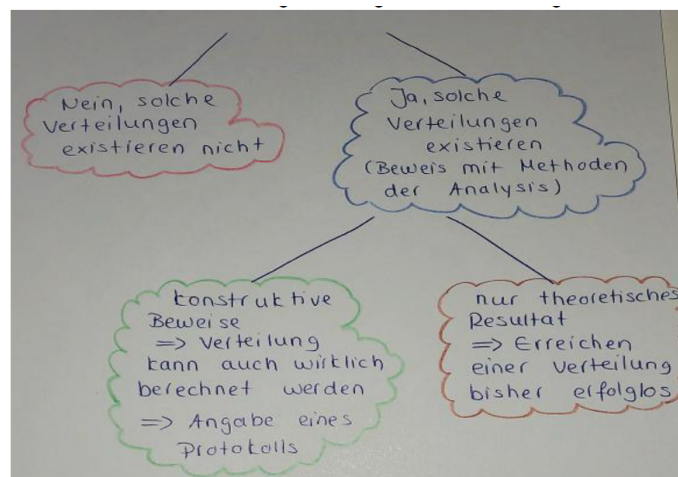 Nein, solche
Verteilungen
existieren nicht
Ja, solche
Verteilungen
existieren
(Beweis mit Methoden
der Analysis)
konstruktive
Beweise
=> Verteilung
kann auch wirklich
berechnet werden
=> Angabe eines
Protokolls
nur theoretisches
Resultat
=> Erreichen
einer Verteilung
bisher erfolglos